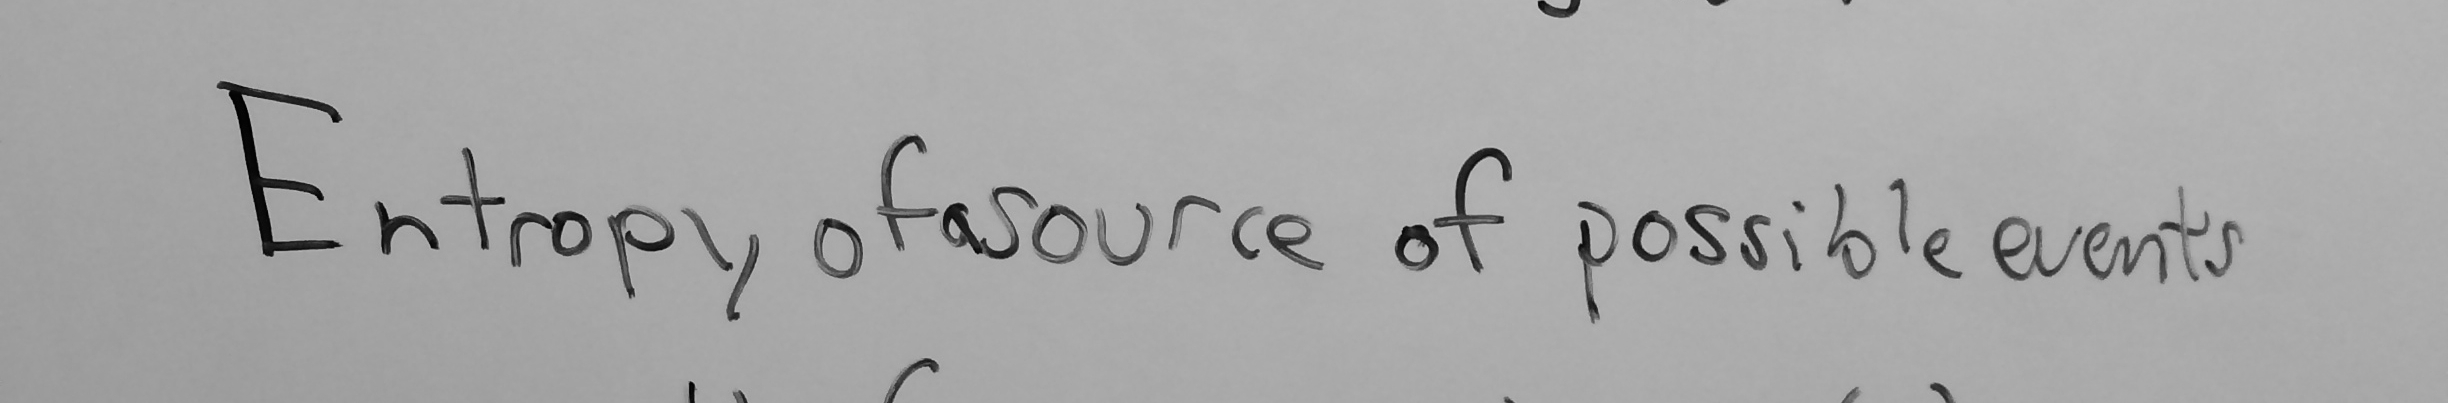 Entropy of a source of possible events